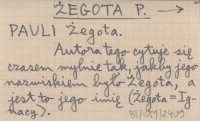 ŻEGOTA P. →
PAULI Żegota.
Autora tego cytuje się
czasem mylnie tak, jakby jego
nazwiskiem było Żegota, a
jest to jego imię (Żegota=Ig-
nacy).